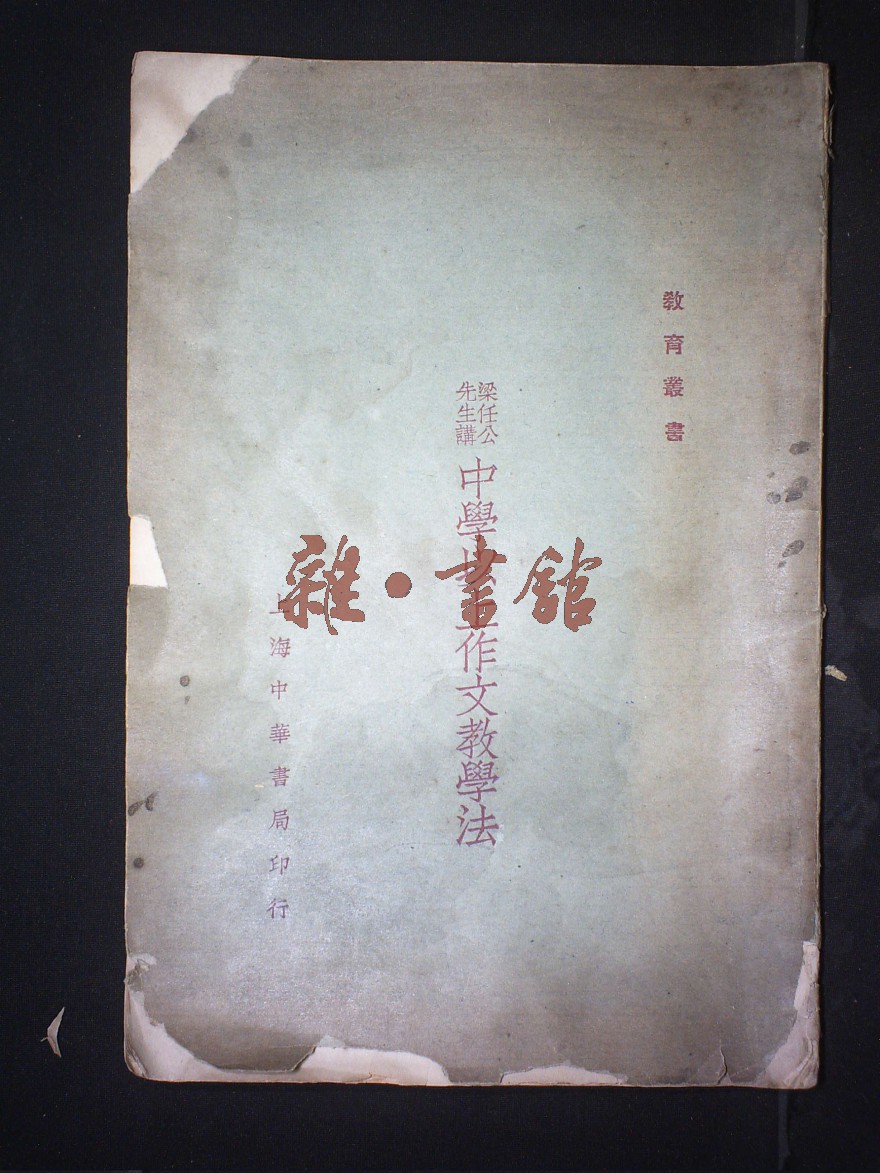 教育叢書
梁任公
先生講
中學以上作文教學法
上海中華書局印行
雜·書館